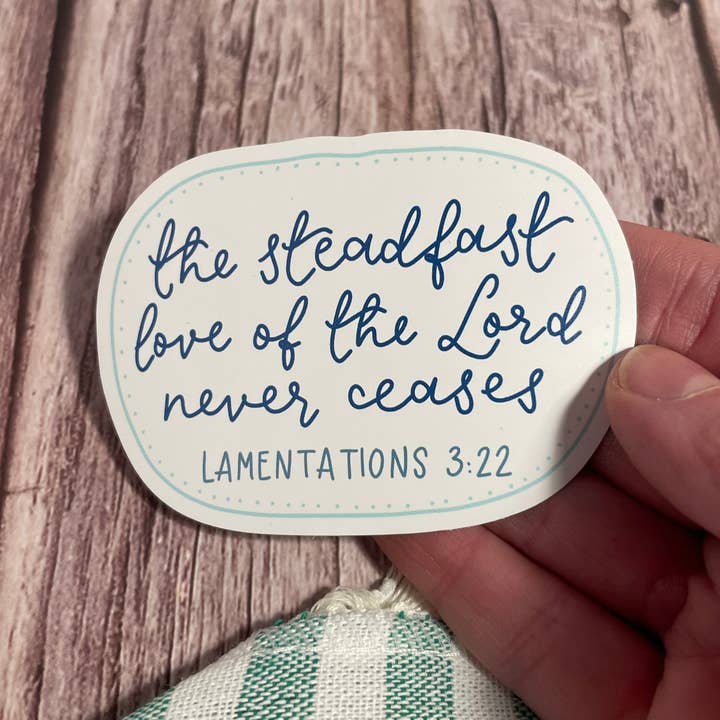 the steadfast
love of the Lord
never ceases
LAMENTATIONS 3:22